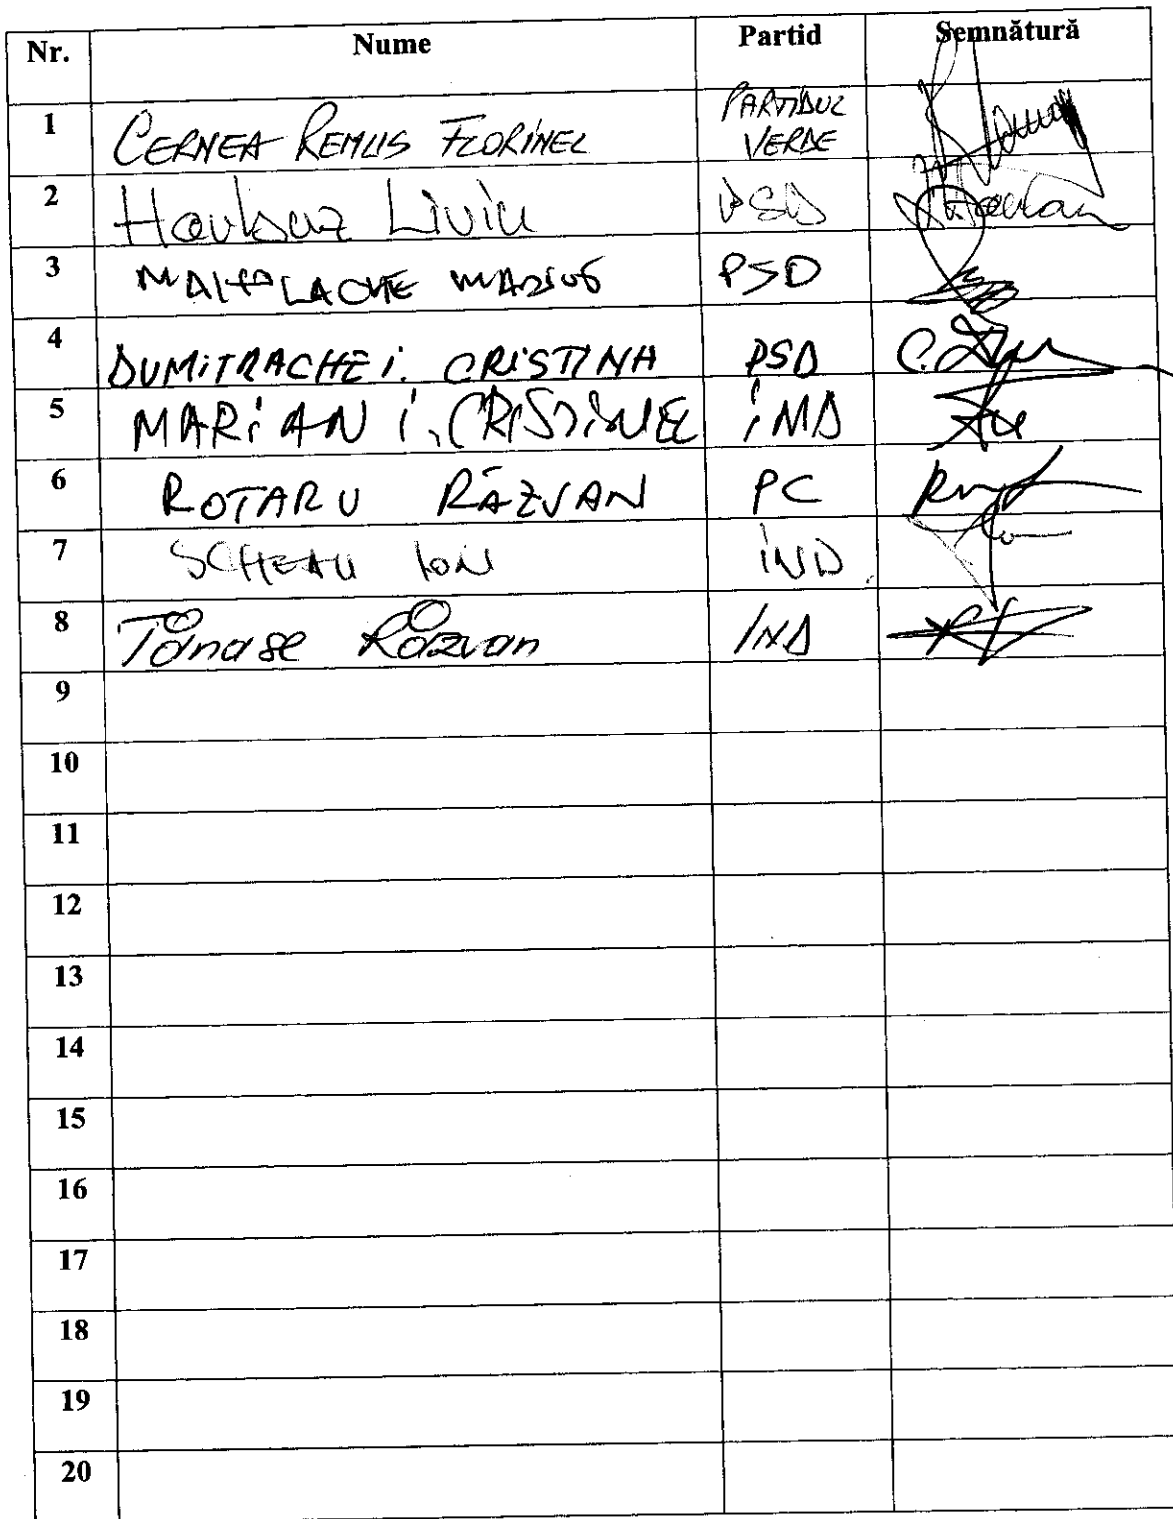 Nr. Nume Partid Semnătură
1 CERNEA REMUS FLORINEL PARTIDUL VERDE
2 Harbuz Liviu PSD
3 MARIUS PSD
4 DUMITRACHE I. CRISTINA PSD
5 MARIAN I. CRISTINEL IND
6 ROTARU RĂZVAN PC
7 SCHEAU ION IND.
8 Tănase Răzvan IND
9
10
11
12
13
14
15
16
17
18
19
20